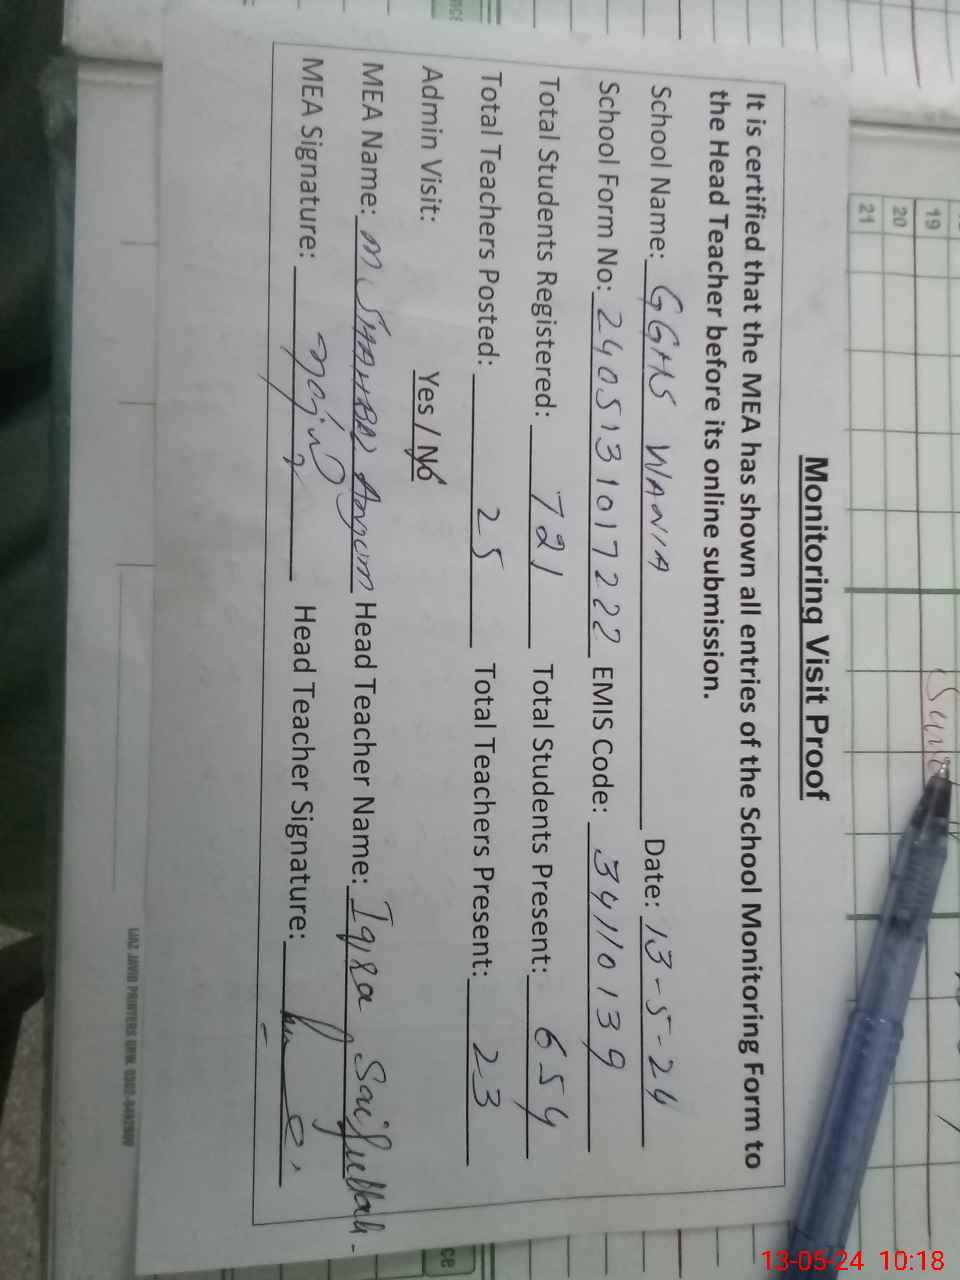 Monitoring Visit Proof
It is certified that the MEA has shown all entries of the School Monitoring Form to
the Head Teacher before its online submission.
School Name: GGHS WANIA Date: 13-5-24
School Form No: 2405131017222 EMIS Code: 34110139
Total Students Registered: 721 Total Students Present: 654
Total Teachers Posted: 25 Total Teachers Present: 23
Admin Visit: Yes / No
MEA Name: M. Anjum Head Teacher Name: Iqra Saifullah
MEA Signature: Head Teacher Signature:
19
20
21
13-05-24 10:18